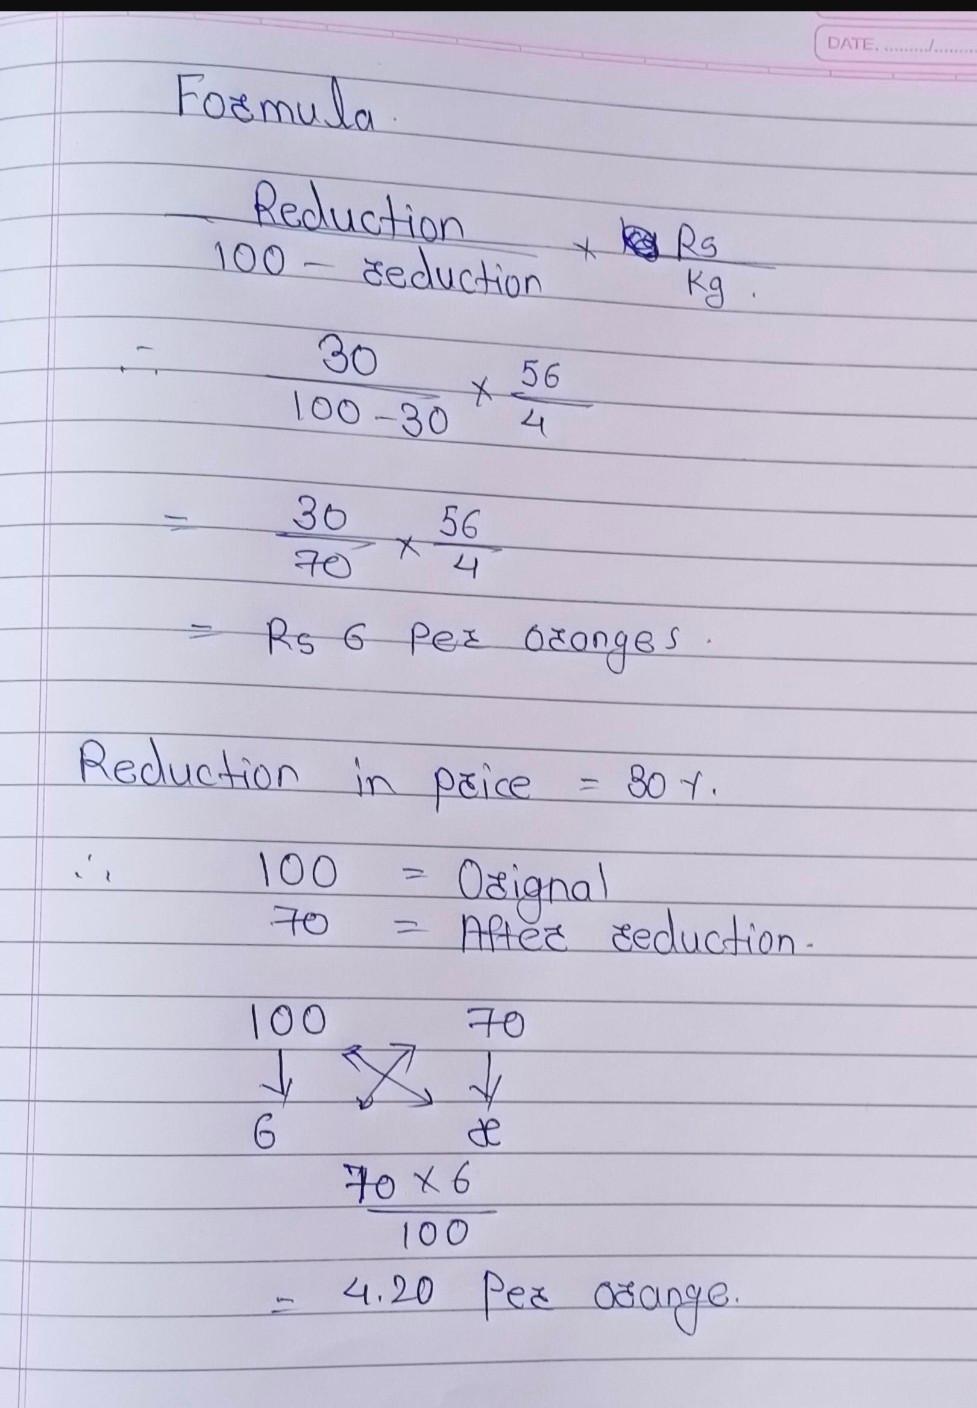 DATE. ........./.........
Formula.
Reduction
100 - reduction
× Rs
Kg.
∴ 30
100-30
× 56
4
= 30
70
× 56
4
= Rs 6 Per oranges.
Reduction in price = 30%.
∴ 100 = Orignal
70 = After reduction.
100 70
6 x
70 × 6
100
= 4.20 Per orange.